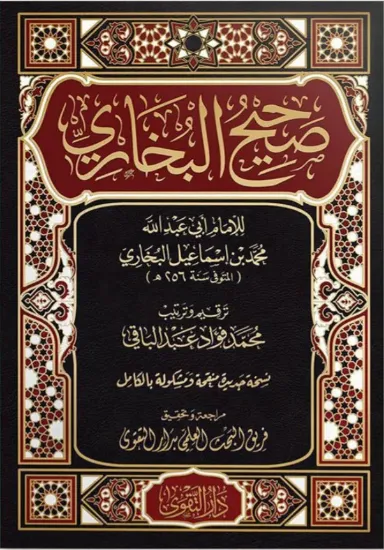 صَحِيحُ البُخَارِيِّ
للإمام أبي عبد الله
محمد بن إسماعيل البخاري
( المتوفى سنة ٢٥٦ هـ )
ترقيم وترتيب
محمد فؤاد عبد الباقي
نسخة جديدة منقحة ومشكولة بالكامل
مراجعة وتحقيق
فريق البحث العلمي بدار التقوى
دار التقوى